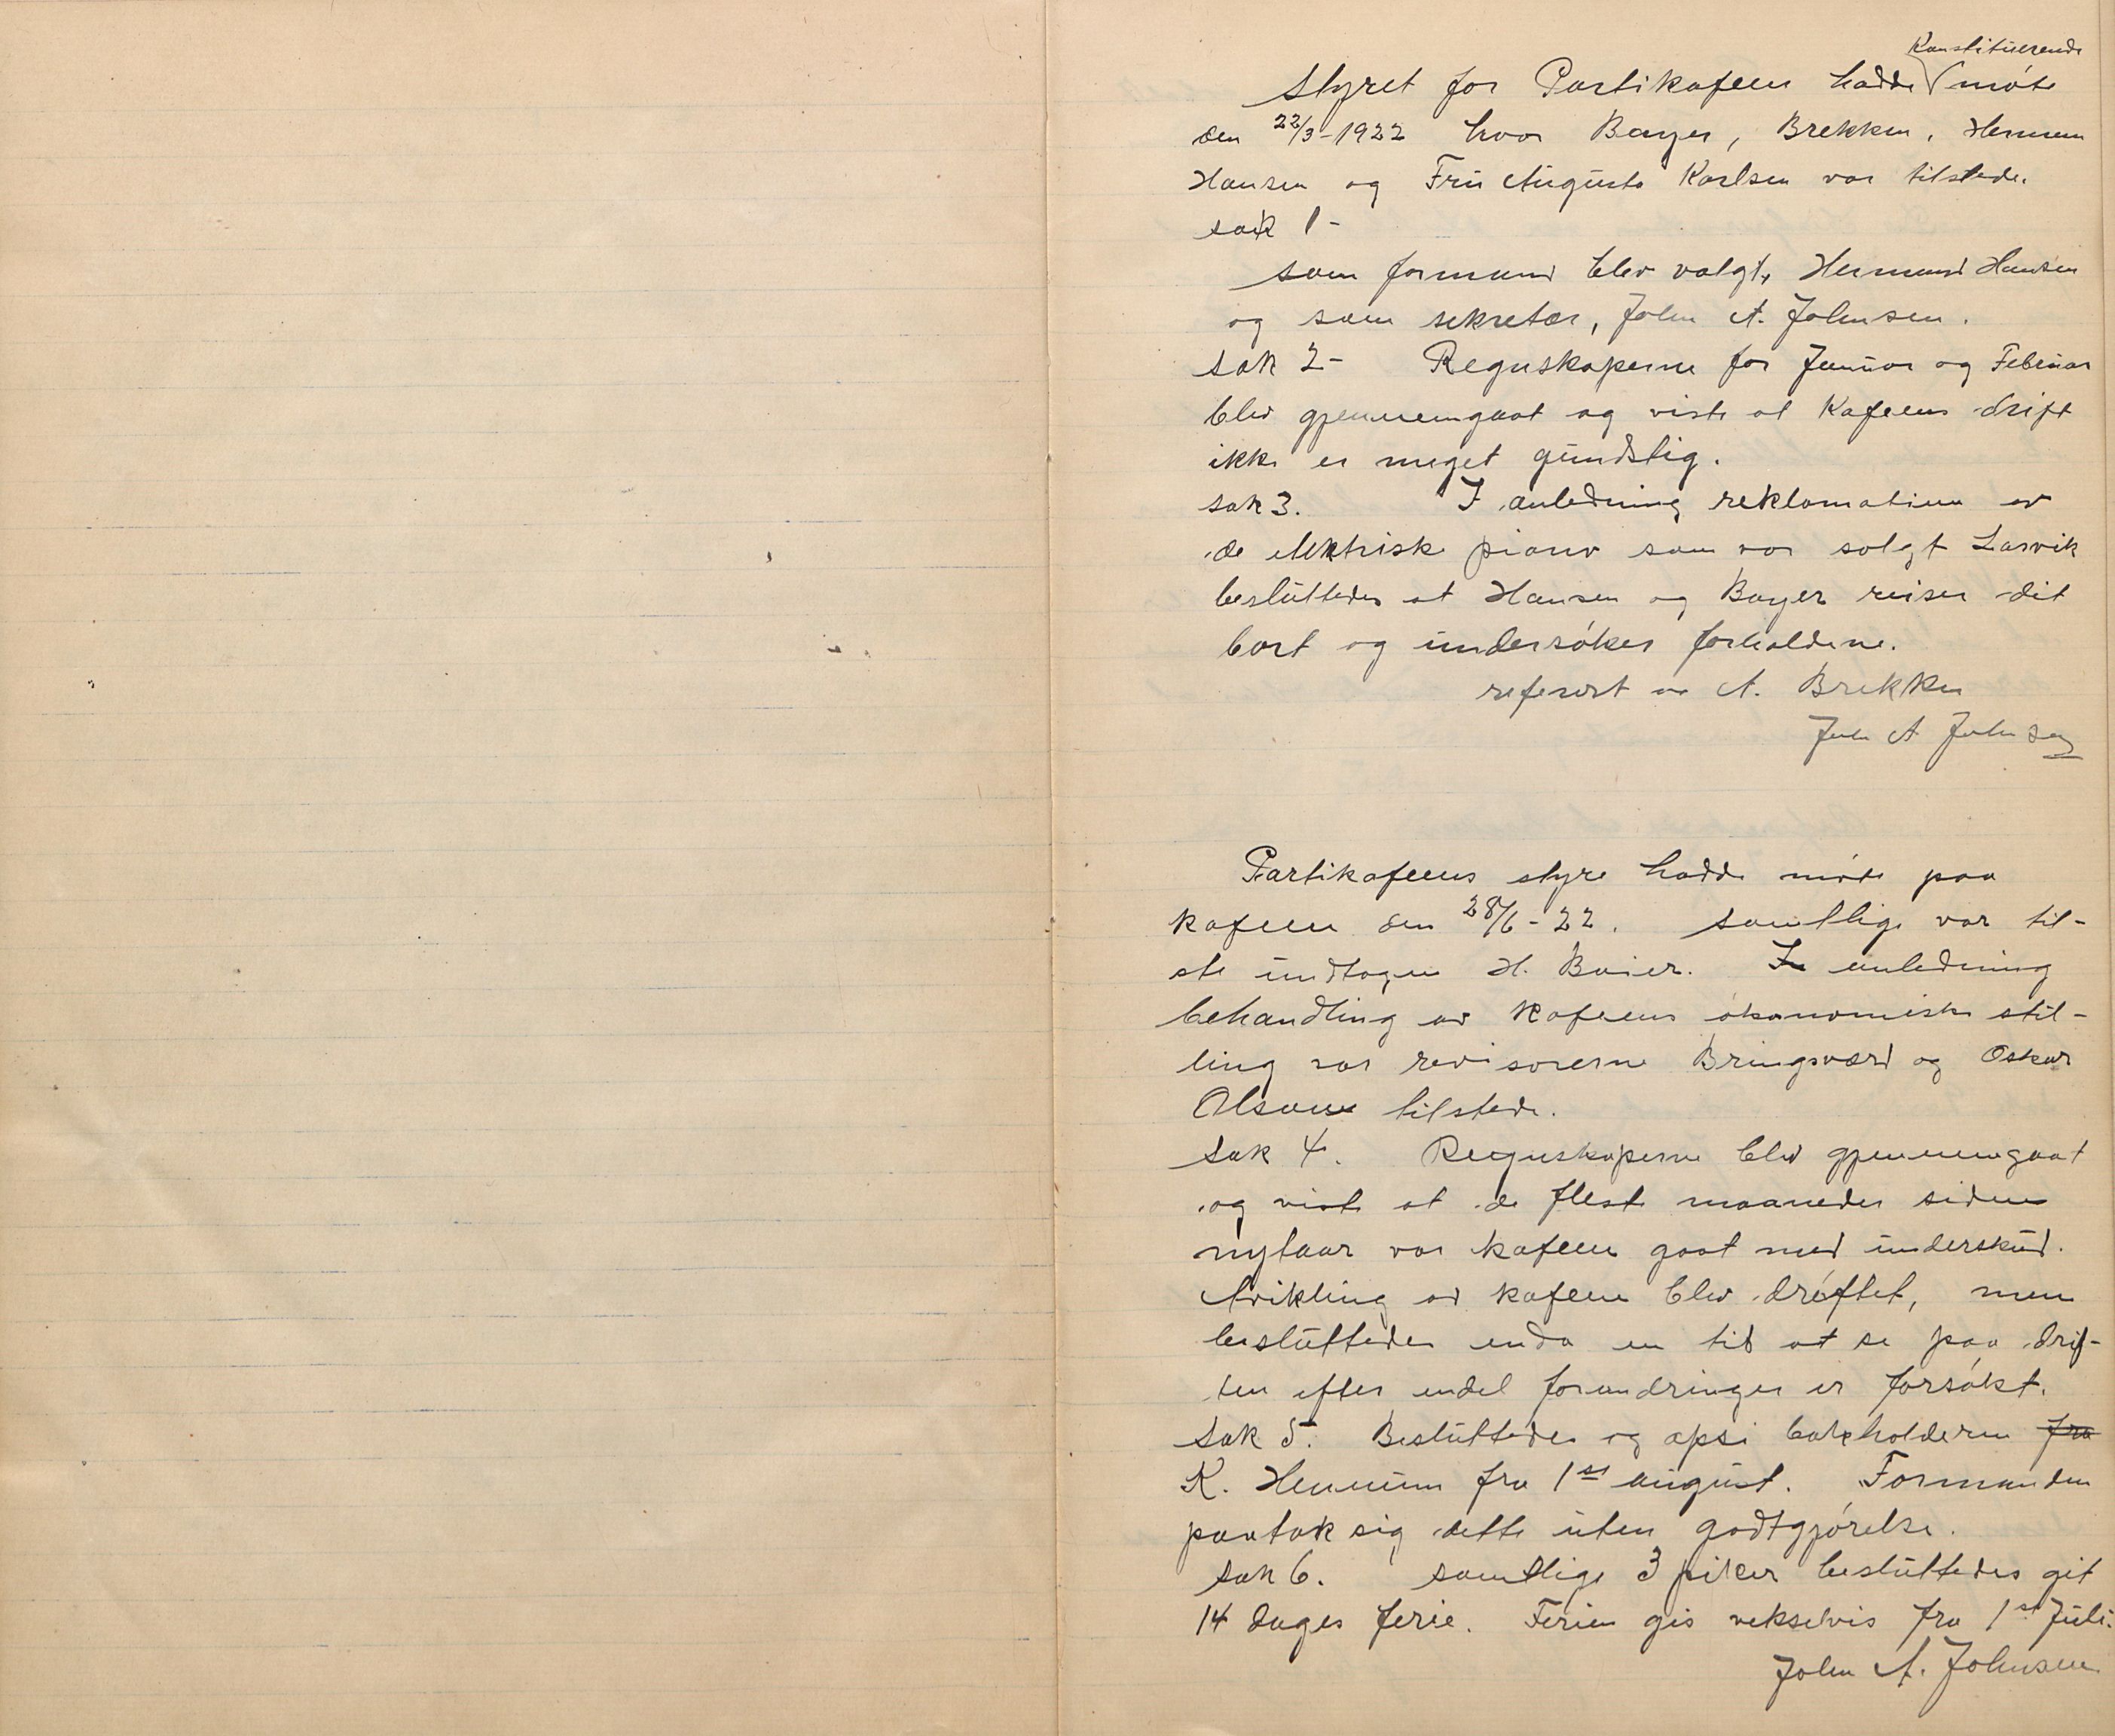 Konstituerende
Styret for Partikafeen hadde møte
den 22/3-1922 hvor Bayer, Brekken, Hermann
Hansen og Fru Augusta Karlsen var tilstede.
sak 1-
som formann blev valgt, Hermand Hansen
og som sekretær, John A. Johnsen.
sak 2- Regnskaperne for Januar og Februar
blev gjennemgaat og viste at Kafeens drift
ikke er meget gundstig.
sak 3. I anledning reklamation av
de elektriske piano som var solgt Larvik
besluttedes at Hansen og Bayer reiser dit
bort og undersøker forholdene.
referert av A. Brekken
John A Johnsen
Partikafeens styre hadde møte paa
kafeen den 28/6-22. samtlige var til-
ste undtagen H. Baier. I anledning
behandling av Kafeens økonomiske stil-
ling var revisorerne Bringsværd og Oskar
Olsen tilstede.
Sak 4. Regnskaperne blev gjennemgaat
og viste at de fleste maaneder siden
nytaar var kafeen gaat med underskud.
Avikling av kafeen blev drøftet, men
besluttedes enda en tid at se paa drif-
ten efter endel forandringer er forsøkt.
Sak 5. Besluttedes og opsi bokholderen fra
K. Hennum fra 1st august. Formanden
paatok sig dette uten godtgjørelse.
sak 6. samtlige 3 piker besluttedes git
14 dages ferie. Ferien gis vekselvis fra 1st Juli.
John A. Johnsen